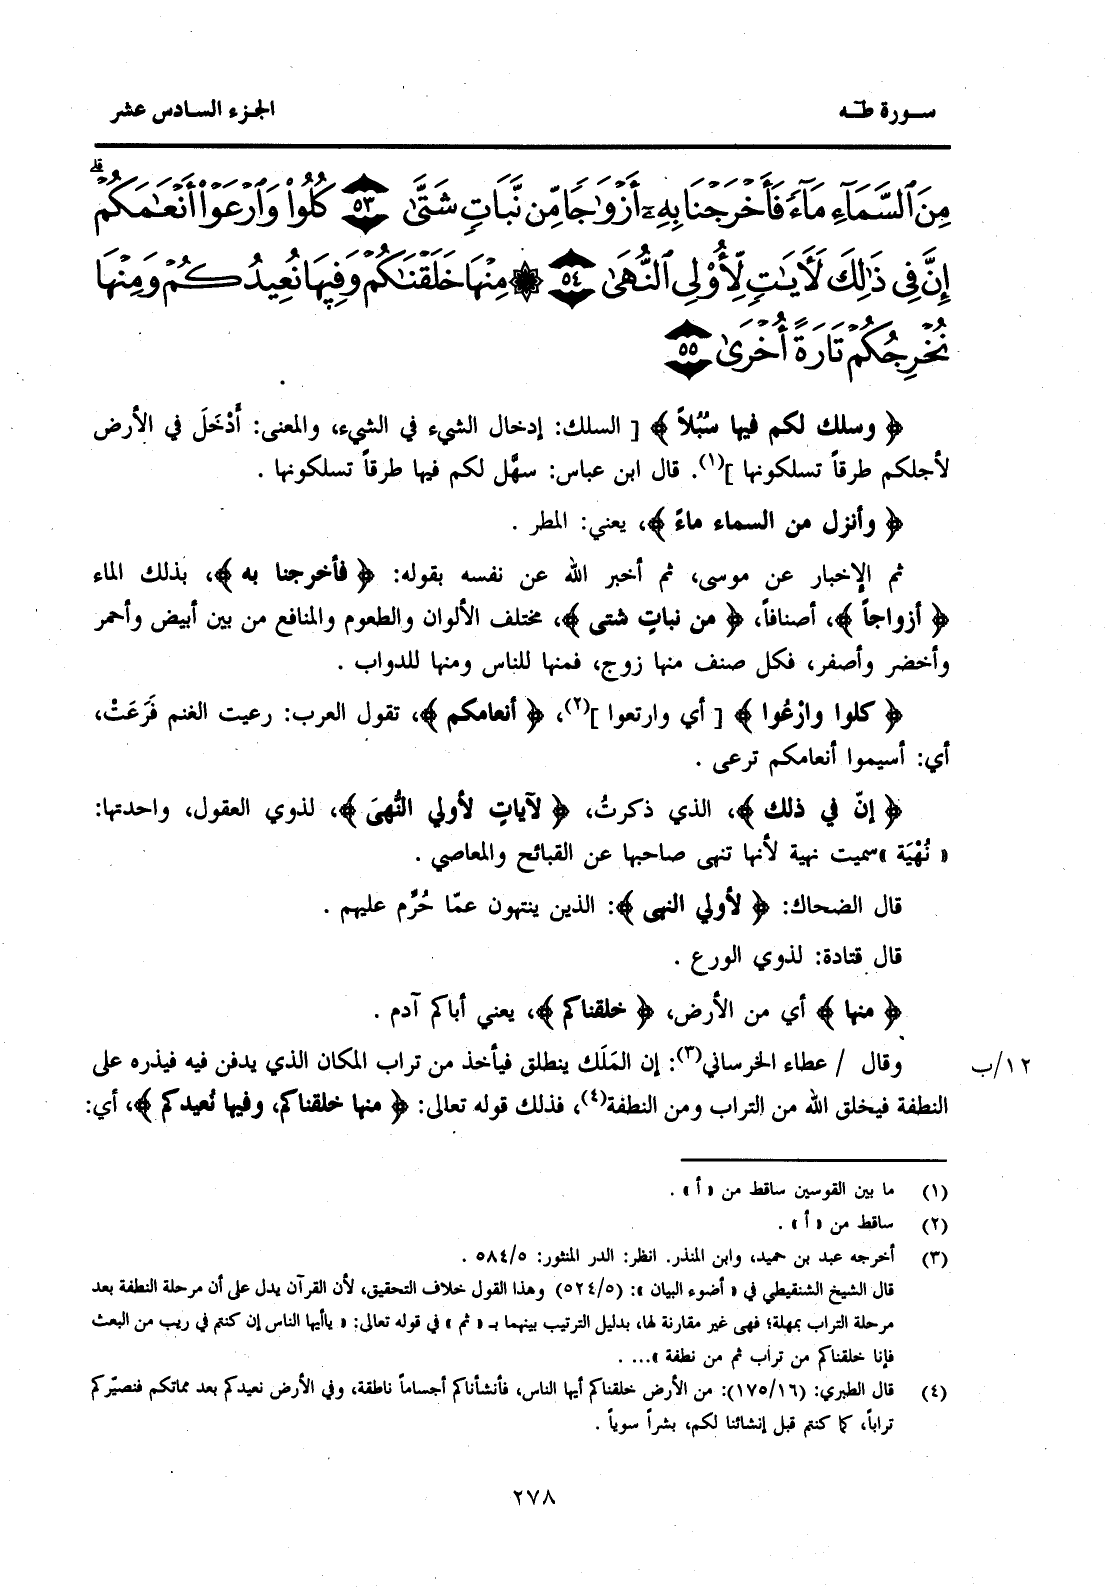 سورة طه
الجزء السادس عشر
مِنَ ٱلسَّمَآءِ مَآءً فَأَخْرَجْنَا بِهِۦٓ أَزْوَٰجًا مِّن نَّبَاتٍ شَتَّىٰ ٥٣ كُلُوا۟ وَٱرْعَوْا۟ أَنْعَٰمَكُمْ ۗ
إِنَّ فِى ذَٰلِكَ لَـَٔايَٰتٍ لِّأُو۟لِى ٱلنُّهَىٰ ٥٤ ۞ مِنْهَا خَلَقْنَٰكُمْ وَفِيهَا نُعِيدُكُمْ وَمِنْهَا
نُخْرِجُكُمْ تَارَةً أُخْرَىٰ ٥٥
﴿ وسلك لكم فيها سُبُلاً ﴾ [ السلك: إدخال الشيء في الشيء، والمعنى: أَدْخَلَ في الأرض
لأجلكم طرقاً تسلكونها ](١). قال ابن عباس: سهَّل لكم فيها طرقاً تسلكونها .
﴿ وأنزل من السماء ماءً ﴾، يعني: المطر .
ثم الإخبار عن موسى، ثم أخبر الله عن نفسه بقوله: ﴿ فأخرجنا به ﴾، بذلك الماء
﴿ أزواجاً ﴾، أصنافاً، ﴿ من نباتٍ شتى ﴾، مختلف الألوان والطعوم والمنافع من بين أبيض وأحمر
وأخضر وأصفر، فكل صنف منها زوج، فمنها للناس ومنها للدواب .
﴿ كلوا وارْعُوا ﴾ [ أي وارتعوا ](٢)، ﴿ أنعامكم ﴾، تقول العرب: رعيت الغنم فَرَعَتْ،
أي: أسيموا أنعامكم ترعى .
﴿ إنّ في ذلك ﴾، الذي ذكرتُ، ﴿ لآياتٍ لأولي النُّهىَ ﴾، لذوي العقول، واحدتها:
« نُهْيَة »سميت نهية لأنها تنهى صاحبها عن القبائح والمعاصي .
قال الضحاك: ﴿ لأولي النهى ﴾: الذين ينتهون عمّا حُرِّم عليهم .
قال قتادة: لذوي الورع .
﴿ منها ﴾ أي من الأرض، ﴿ خلقناكم ﴾، يعني أباكم آدم .
وقال / عطاء الخرساني(٣): إن المَلَك ينطلق فيأخذ من تراب المكان الذي يدفن فيه فيذره على
١٢/ب
النطفة فيخلق الله من التراب ومن النطفة(٤)، فذلك قوله تعالى: ﴿ منها خلقناكم، وفيها نُعيدكم ﴾، أي:
(١) ما بين القوسين ساقط من « أ » .
(٢) ساقط من « أ » .
(٣) أخرجه عبد بن حميد، وابن المنذر. انظر: الدر المنثور: ٥٨٤/٥ .
قال الشيخ الشنقيطي في « أضوء البيان »: (٥٢٤/٥) وهذا القول خلاف التحقيق، لأن القرآن يدل على أن مرحلة النطفة بعد
مرحلة التراب بمهلة؛ فهى غير مقارنة لها، بدليل الترتيب بينهما بـ « ثم » في قوله تعالى: « ياأيها الناس إن كنتم في ريب من البعث
فإنا خلقناكم من تراب ثم من نطفة »... .
(٤) قال الطبري: (١٧٥/١٦): من الأرض خلقناكم أيها الناس، فأنشأناكم أجساماً ناطقة، وفي الأرض نعيدكم بعد مماتكم فنصيّركم
تراباً، كما كنتم قبل إنشائنا لكم، بشراً سوياً .
٢٧٨